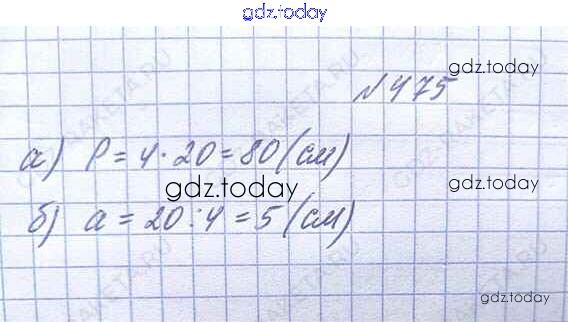 gdz.today
№475
gdz.today
а) P = 4 · 20 = 80 (см)
gdz.today
gdz.today
б) a = 20 : 4 = 5 (см)
gdz.today